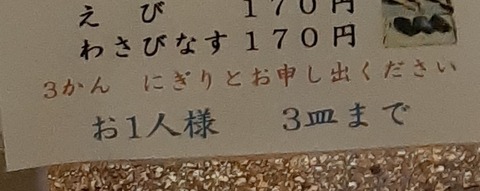 えび 170円
わさびなす 170円
3かん にぎりとお申し出ください
お1人様 3皿まで